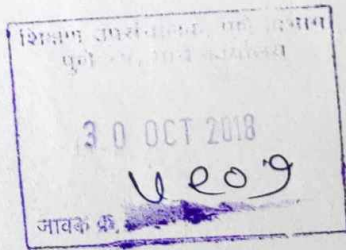 शिक्षण उपसंचालक, पुणे विभाग
पुणे यांचे कार्यालय
30 OCT 2018
५९०१
जावक क्र.